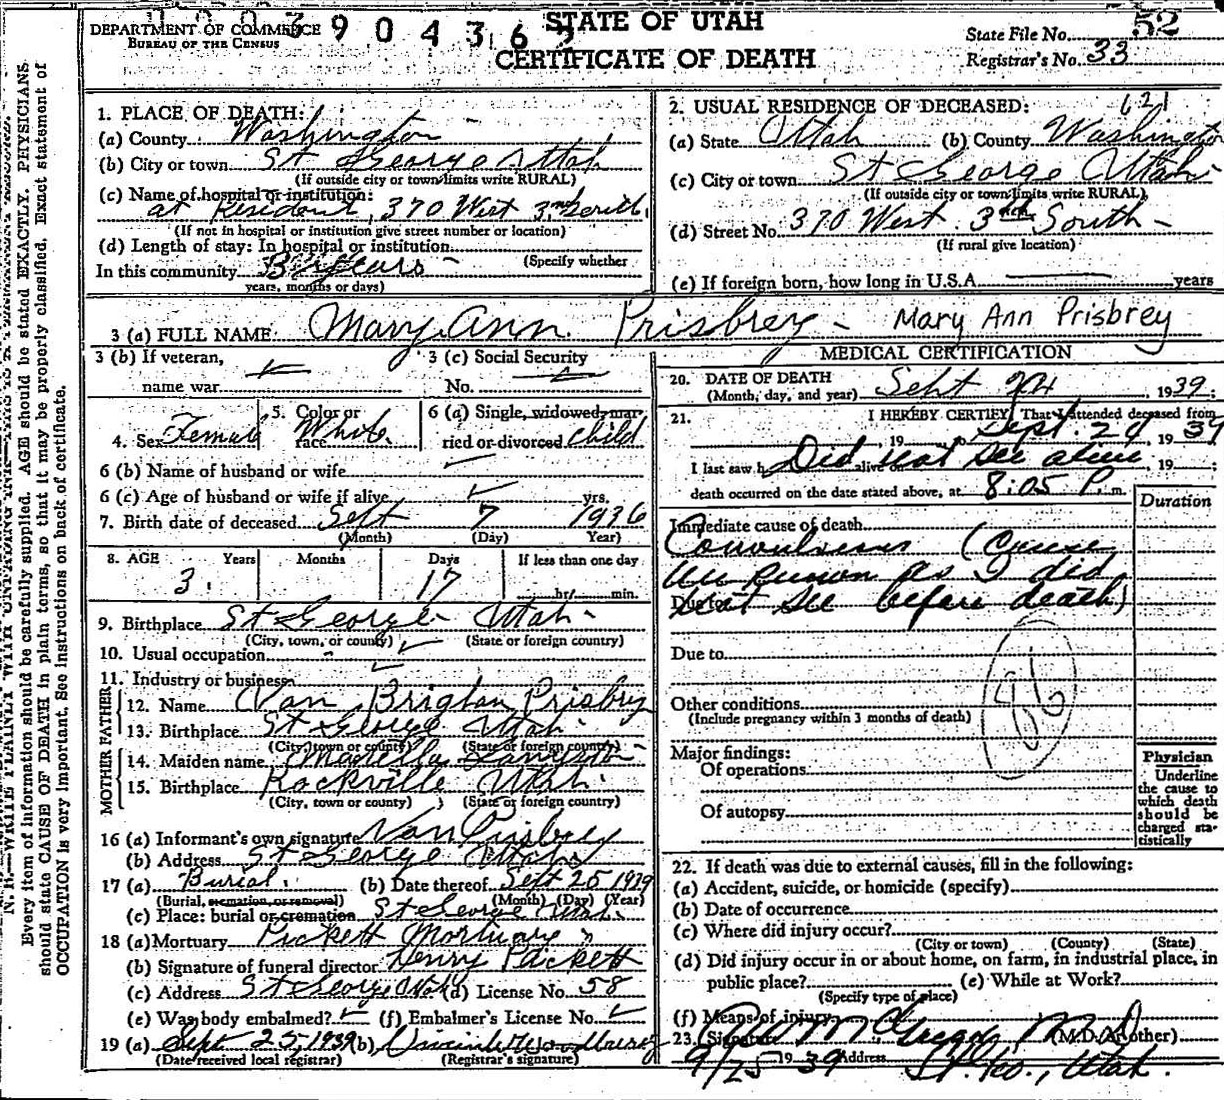 0 0 0 3 9 0 4 3 6
DEPARTMENT OF COMMERCE
BUREAU OF THE CENSUS
STATE OF UTAH
CERTIFICATE OF DEATH
State File No. 52
Registrar's No. 33
Every item of information should be carefully supplied. AGE should be stated EXACTLY. PHYSICIANS
should state CAUSE OF DEATH in plain terms, so that it may be properly classified. Exact statement of
OCCUPATION is very important. See instructions on back of certificate.
1. PLACE OF DEATH:
(a) County Washington
(b) City or town St George Utah
(If outside city or town limits write RURAL)
(c) Name of hospital or institution:
at Resident, 370 West 3rd South.
(If not in hospital or institution give street number or location)
(d) Length of stay: In hospital or institution
(Specify whether
In this community 3 years
years, months or days)
2. USUAL RESIDENCE OF DECEASED: 621
(a) State Utah (b) County Washington
(c) City or town St George Utah
(If outside city or town limits write RURAL)
(d) Street No. 370 West 3rd South
(If rural give location)
(e) If foreign born, how long in U.S.A. years
3 (a) FULL NAME: Mary Ann Prisbrey - Mary Ann Prisbrey
3 (b) If veteran,
name war
3 (c) Social Security
No.
4. Sex Female 5. Color or race White 6 (a) Single, widowed, married or divorced child
6 (b) Name of husband or wife
6 (c) Age of husband or wife if alive yrs.
7. Birth date of deceased Sept 7 1936
(Month) (Day) Year)
8. AGE Years Months Days If less than one day
3. 17 hr. min.
9. Birthplace St George Utah
(City, town, or county) (State or foreign country)
10. Usual occupation
11. Industry or business
FATHER
12. Name Van Brigton Prisbry
13. Birthplace St George Utah
(City, town or county) (State or foreign country)
MOTHER
14. Maiden name
15. Birthplace Rockville Utah
(City, town or county) (State or foreign country)
16 (a) Informant's own signature Van Prisbrey
(b) Address St George Utah
17 (a) Burial. (b) Date thereof Sept 25 1939
(Burial, cremation, or removal) (Month) (Day) (Year)
(c) Place: burial or cremation St George Utah
18 (a) Mortuary Pickett Mortuary
(b) Signature of funeral director Henry Pickett
(c) Address St George Utah (d) License No. 58
(e) Was body embalmed? (f) Embalmer's License No.
19 (a) Sept 25, 1939 (b) Woodbury
(Date received local registrar) (Registrar's signature)
MEDICAL CERTIFICATION
20. DATE OF DEATH
(Month, day, and year) Sept 24, 1939;
21. I HEREBY CERTIFY, That I attended deceased from
, 19 to Sept. 24, 1939
I last saw h alive on Did not see alive, 19 ;
death occurred on the date stated above, at 8:05 P. m.
Duration
Immediate cause of death
Convulsions (Cause
unknown as I did
Due to
not see before death)
Due to
Other conditions
(Include pregnancy within 3 months of death)
86
Major findings:
Of operations
Of autopsy
Physician
Underline
the cause to
which death
should be
charged sta-
tistically
22. If death was due to external causes, fill in the following:
(a) Accident, suicide, or homicide (specify)
(b) Date of occurrence
(c) Where did injury occur?
(City or town) (County) (State)
(d) Did injury occur in or about home, on farm, in industrial place, in
public place? (e) While at Work?
(Specify type of place)
(f) Means of injury
23. (Signature McGregor M.D. (M.D. or other)
9/25 1939 Address St. Geo., Utah.